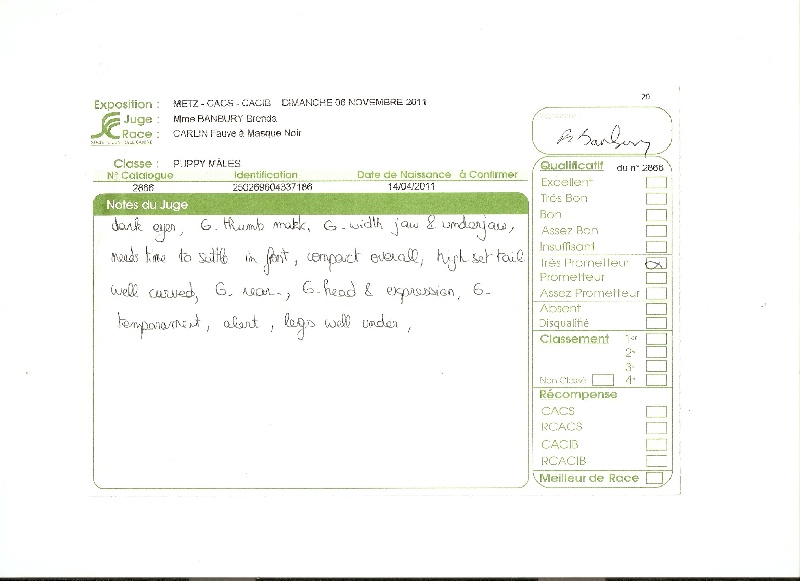 20
Exposition : METZ - CACS - CACIB DIMANCHE 06 NOVEMBRE 2011
Juge : Mme BANBURY Brenda
Race : CARLIN Fauve à Masque Noir
Classe : PUPPY MÂLES
N° Catalogue Identification Date de Naissance à Confirmer
2866 250269604337186 14/04/2011
Notes du Juge
dark eyes, G. thumb mark, G. width jaw & underjaw,
needs time to settle in front, compact overall, high set tail
well curved, G. rear., G. head & expression, G.
temparament, alert, legs well under,
B Banbury
Qualificatif du n° 2866
Excellent
Très Bon
Bon
Assez Bon
Insuffisant
Très Prometteur
Prometteur
Assez Prometteur
Absent
Disqualifié
Classement 1er
2e
3e
Non Classé 4e
Récompense
CACS
RCACS
CACIB
RCACIB
Meilleur de Race